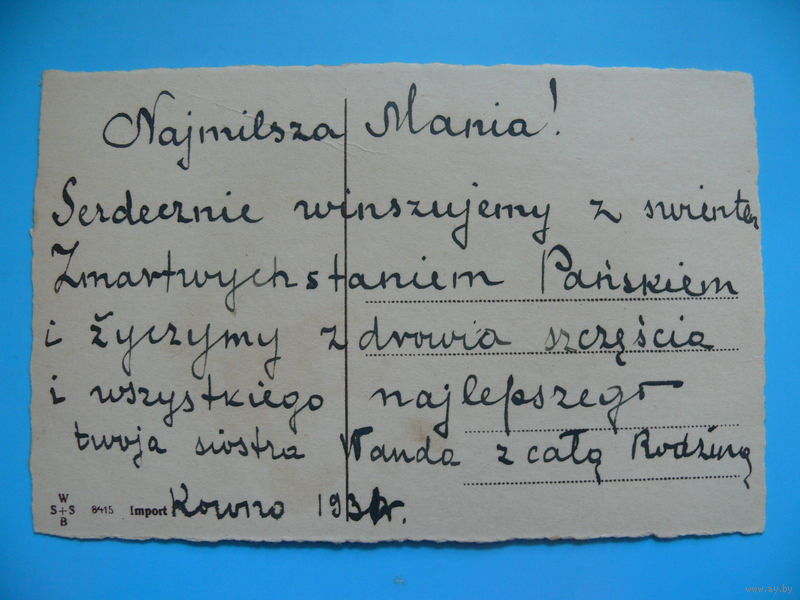 Najmilsza Mania!
Serdecznie winszujemy z swienten
Zmartwychstaniem Pańskiem
i życzymy zdrowia szczęścia
i wszystkiego najlepszego
twoja siostra Wanda z całą Rodziną
Kowno
W
S+S
B
8415 Import
www.ay.by